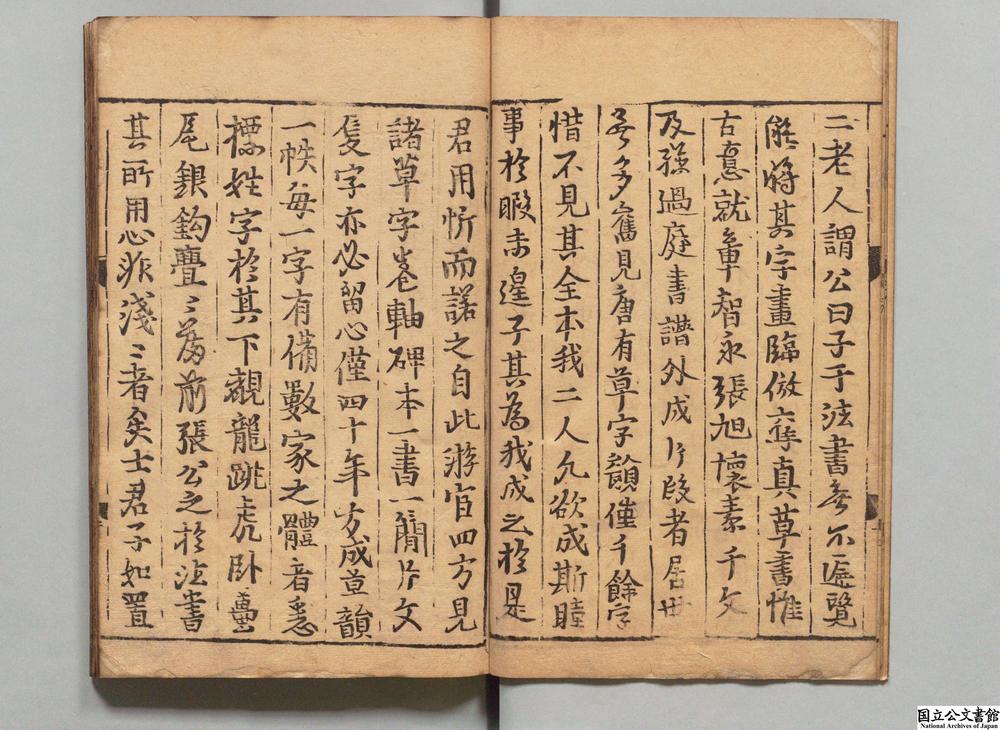 二老人謂公曰子于法書無不遍覽
能將其字畫臨倣奪真草書惟
古意就章智永張旭懷素千文
及孫過庭書譜外成片段者居世
無多舊見唐有草字韻僅千餘字
惜不見其全本我二人久欲成斯
事於暇未遑子其為我成之於是
君用忻而諾之自此游宦四方見
諸草字卷軸碑本一書一簡片文
隻字亦必留心僅四十年方成草韻
一帙每一字有備數家之體音悉
標姓字於其下觀龍跳虎卧蠆
尾銀鈎亹〻為前張公之於法書
其所用心非淺〻者矣士君子如置
国立公文書館
National Archives of Japan